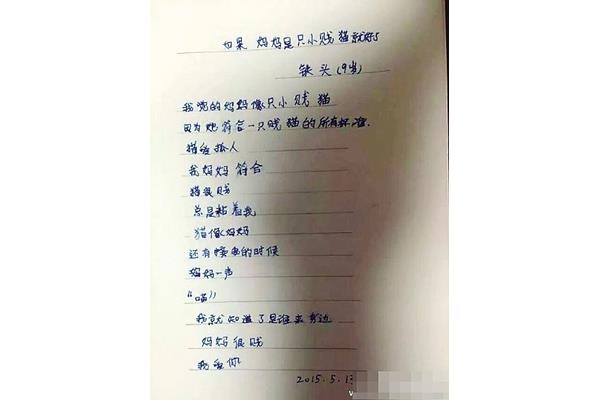 如果 妈妈是只小贱猫就好了
铁头(9岁)
我觉的妈妈像只小贱猫
因为她符合一只贱猫的所有标准.
猫爱抓人
我妈妈符合
猫很贱
总是粘着我
猫像妈妈
还有接电的时候
妈妈一声
“喵”
我就知道了是谁来身边
妈妈很贱
我爱你
2015.5.1